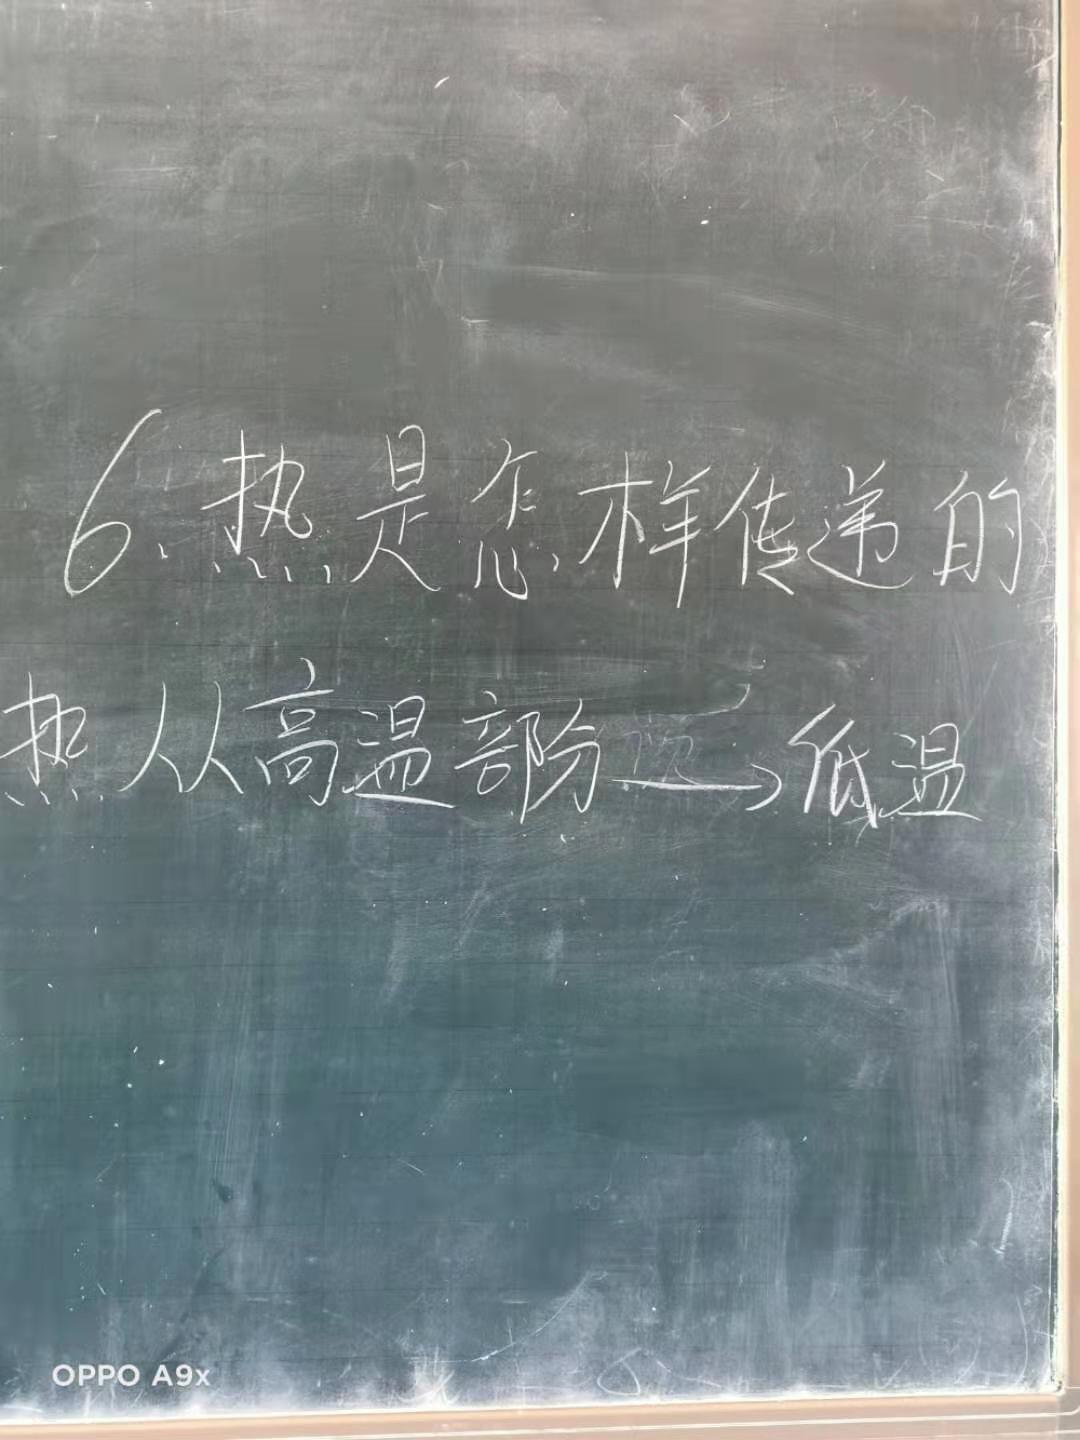 6、热是怎样传递的
热从高温部分→低温
OPPO A9x